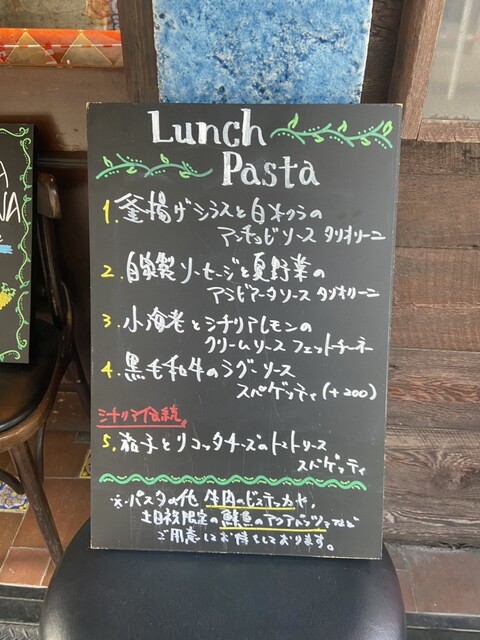 Lunch
Pasta
1. 釜揚げシラスと白イクラの
アンチョビソース タリオリーニ
2. 自家製ソーセージと夏野菜の
アラビアータソース タリオリーニ
3. 小海老とシチリアレモンの
クリームソース フェットチーネ
4. 黒毛和牛のラグーソース
スパゲッティ(+200)
シチリア伝統
5. 茄子とリコッタチーズのトマトソース
スパゲッティ
※パスタの他 牛肉のビステッカや、
土日祝限定の鮮魚のアクアパッツァなど
ご用意してお待ちしております。
NA